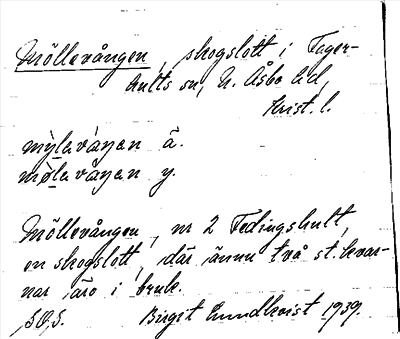 Möllevången, skogslott i Fager-
hults sn, N. Åsbo hd,
Krist. l.
mỳlavåŋan ä.
mø̀lavåŋan y.
Möllevången, nr 2 Fedingshult,
en skogslott, där ännu två st. kvar-
nar äro i bruk.
Birgit Lundkvist 1939.